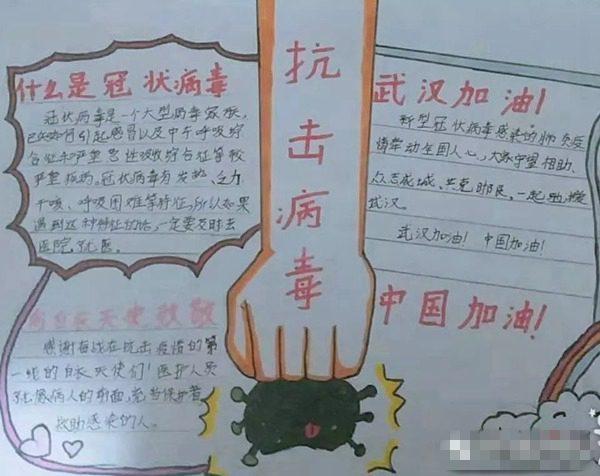 抗击病毒
什么是冠状病毒
冠状病毒是一个大型病毒家族,
已知可引起感冒以及中东呼吸综
合征和严重急性呼吸综合征等较
严重疾病。冠状病毒有发热、乏力、
干咳、呼吸困难等特征,所以如果
遇到这种特征的话,一定要及时去
医院就医。
武汉加油!
新型冠状病毒感染的肺炎疫
情牵动全国人心,大家守望相助、
众志成城、共克时艰,一起
武汉。
武汉加油!中国加油!
中国加油!
向白衣天使致敬
感谢奋战在抗击疫情的第
一线的白衣天使们!医护人员
病人的前面,
救助感染的人。